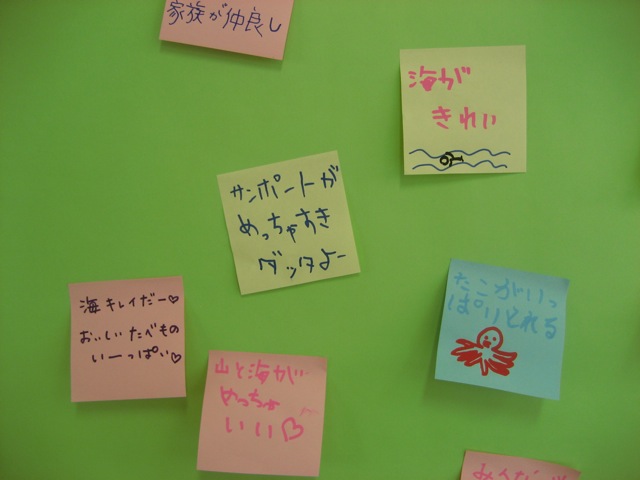 家族が仲良し
海が
きれい
サンポートが
めっちゃすき
ダッタよー
海キレイだー♡
おいしいたべもの
いーっぱい♡
たこがいっ
ぱいとれる
山と海が
めっちゃ
いい♡